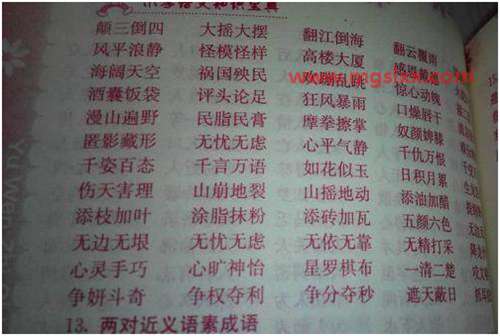 小学语文知识宝典
颠三倒四 大摇大摆 翻江倒海 翻云覆雨
风平浪静 怪模怪样 高楼大厦
海阔天空 祸国殃民 惊心动魄
酒囊饭袋 评头论足 狂风暴雨 口燥唇干
漫山遍野 民脂民膏 摩拳擦掌 奴颜婢膝
匿影藏形 无忧无虑 心平气静 千仇万恨
千姿百态 千言万语 如花似玉 日积月累
伤天害理 山崩地裂 山摇地动 添油加醋
添枝加叶 涂脂抹粉 添砖加瓦 五颜六色
无边无垠 无忧无虑 无依无靠 无精打采
心灵手巧 心旷神怡 星罗棋布 一清二楚
争妍斗奇 争权夺利 争分夺秒 遮天蔽日
13. 两对近义语素成语